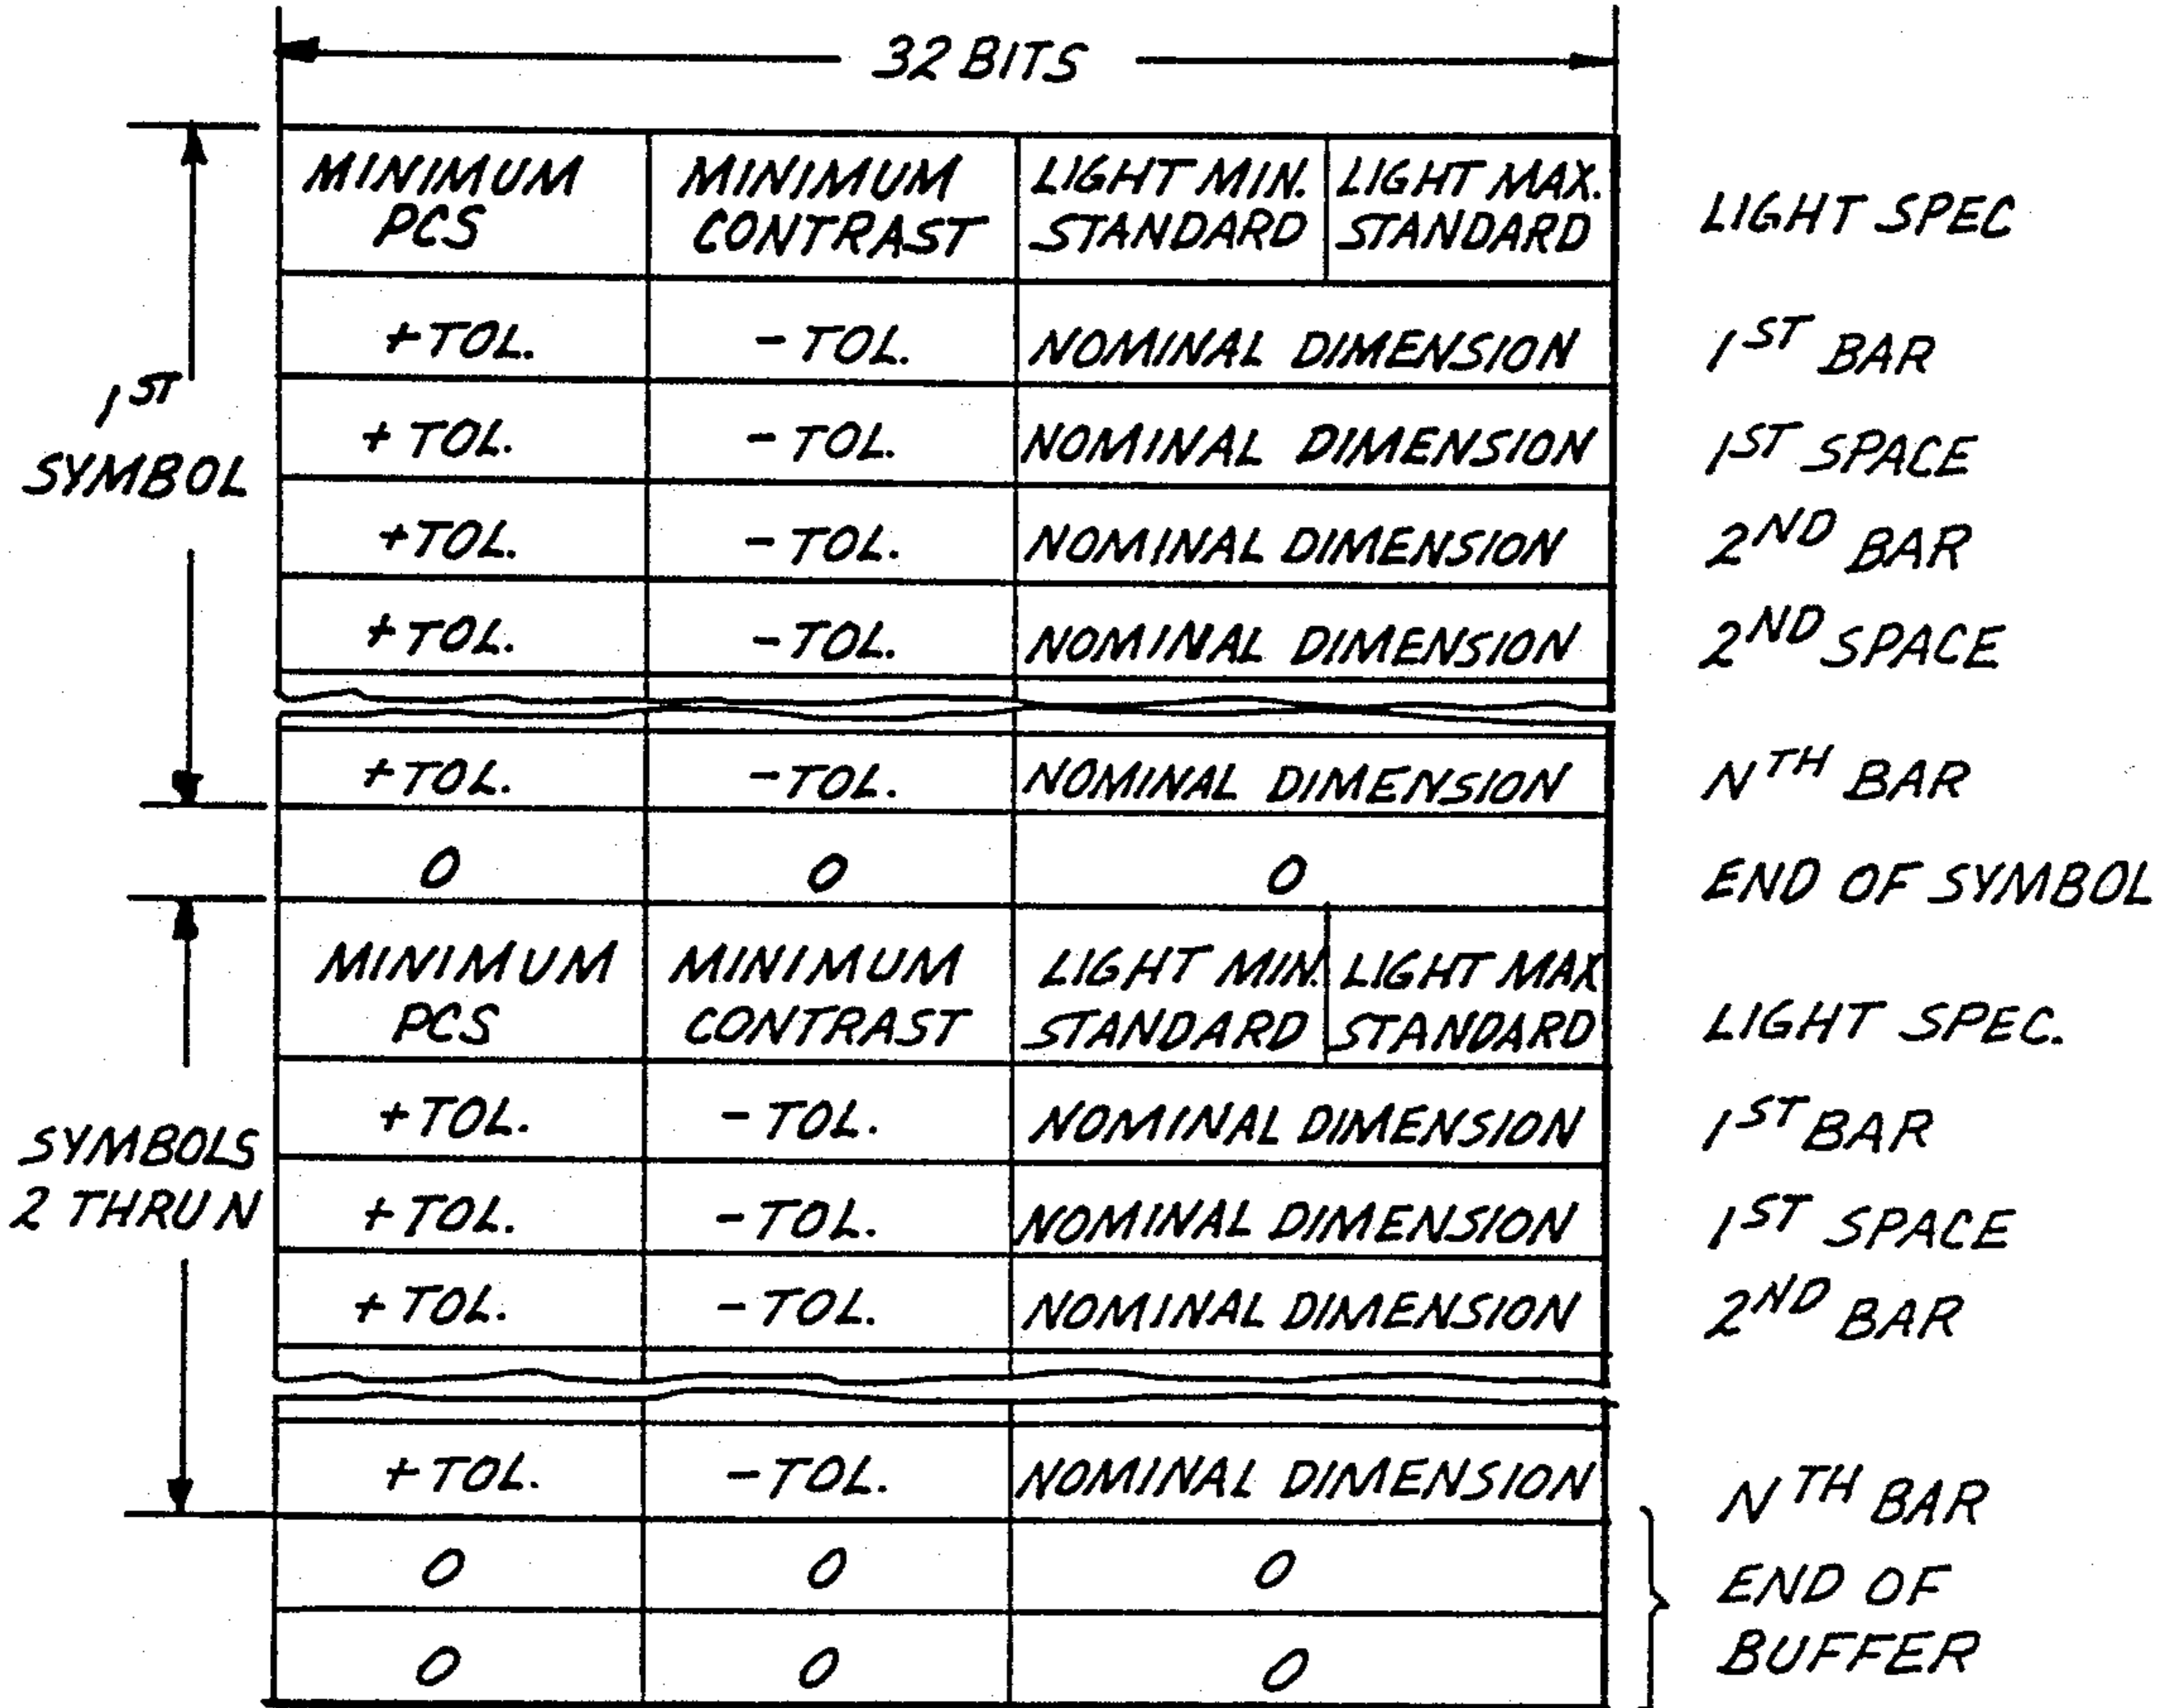 32 BITS
MINIMUM PCS MINIMUM CONTRAST LIGHT MIN. STANDARD LIGHT MAX. STANDARD LIGHT SPEC
+TOL. -TOL. NOMINAL DIMENSION 1ST BAR
1ST SYMBOL
+TOL. -TOL. NOMINAL DIMENSION 1ST SPACE
+TOL. -TOL. NOMINAL DIMENSION 2ND BAR
+TOL. -TOL. NOMINAL DIMENSION 2ND SPACE
+TOL. -TOL. NOMINAL DIMENSION NTH BAR
0 0 0 END OF SYMBOL
MINIMUM PCS MINIMUM CONTRAST LIGHT MIN. STANDARD LIGHT MAX STANDARD LIGHT SPEC.
+TOL. -TOL. NOMINAL DIMENSION 1ST BAR
SYMBOLS 2 THRU N
+TOL. -TOL. NOMINAL DIMENSION 1ST SPACE
+TOL. -TOL. NOMINAL DIMENSION 2ND BAR
+TOL. -TOL. NOMINAL DIMENSION NTH BAR
0 0 0 END OF
0 0 0 BUFFER